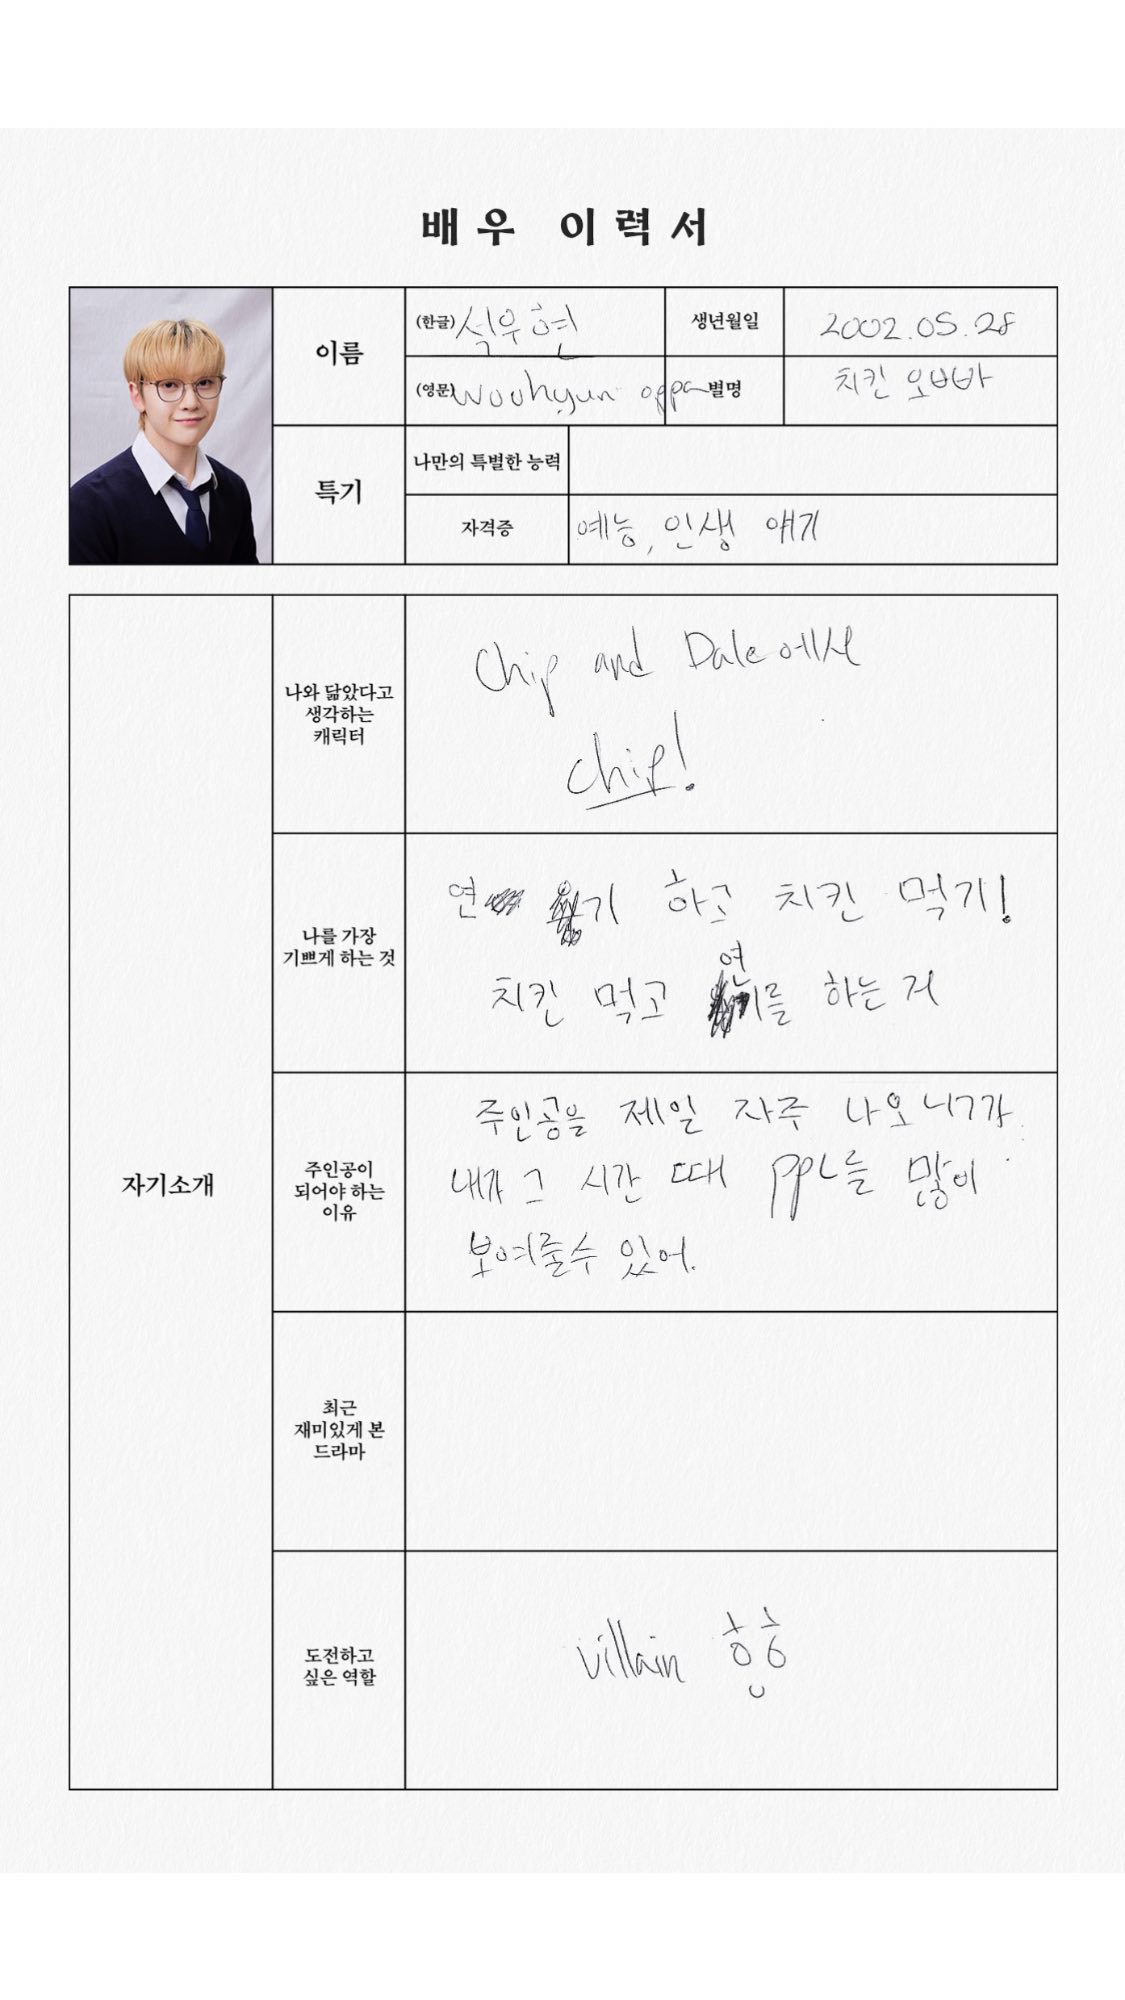 배우 이력서
이름
(한글) 석우현
생년월일
2002.05.28
(영문) Woohyun oppa
별명
치킨 오빠바
특기
나만의 특별한 능력
자격증
예능, 인생 얘기
자기소개
나와 닮았다고
생각하는
캐릭터
Chip and Dale에서
Chip!
나를 가장
기쁘게 하는 것
연 기 하고 치킨 먹기!
치킨 먹고 연기를 하는 거
주인공이
되어야 하는
이유
주인공을 제일 자주 나오니까
내가 그 시간 때 PPL를 많이
보여줄수 있어.
최근
재미있게 본
드라마
도전하고
싶은 역할
villain